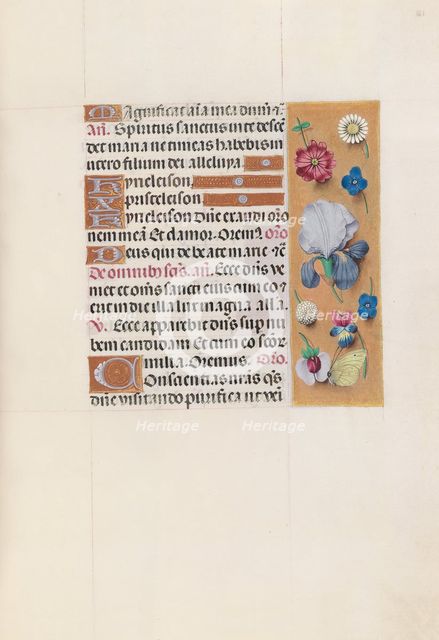 Magnificat aĩa mea dñm ⁊c̃
Añ. Spiritus sanctus in te descẽ
det maria ne timeas habebis in
utero filium dei alleluya
Kyrieleison
Xpristeleison
Kyrieleison Dñe exaudi orõ
nem meã Et clamor. Orem⁹ orõ
Deus qui de beate marie ⁊c̃
De omnib⁹ sc̃is. añ. Ecce dñs ve
niet et om̃s sancti eius cum eo ⁊
erit in die illa lux magna alla.
V̶. Ecce apparebit dñs sup nu
bem candidam Et cum eo sc̃or̃
milia. Oremus. Orõ.
Conscientias nr̃as q̃s
dñe visitando purifica ut veñ